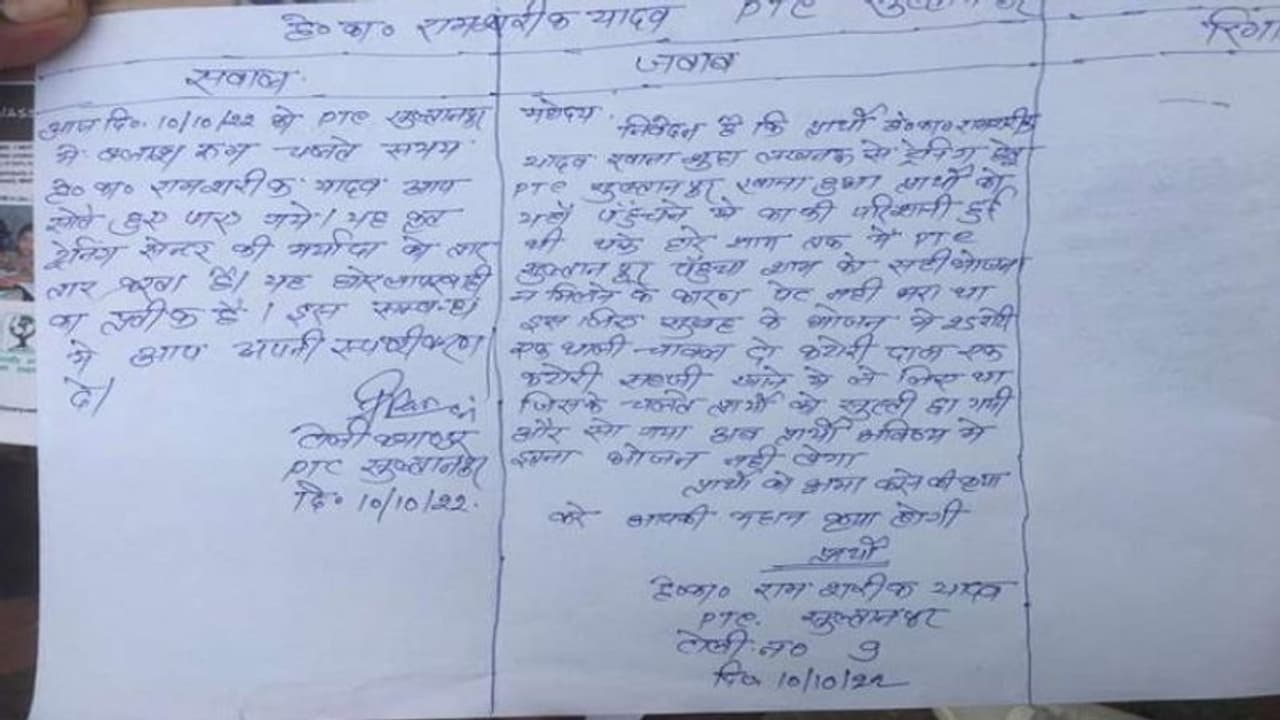 हे० का० रामशरीक यादव PTC सुल्तानपुर
सवाल
आज दि. 10/10/22 को PTC सुल्तानपुर
में क्लास रूम चलते समय
हे० का० रामशरीक यादव आप
सोते हुए पाए गये। यह कृत
ट्रेनिंग सेन्टर की मर्यादा को तार
तार करता है। यह घोर लापरवाही
का प्रतीक है। इस सम्बन्ध
में आप अपनी स्पष्टीकरण
दे।
टोली कमाण्डर
PTC सुल्तानपुर
दि० 10/10/22.
जबाब
महोदय
निवेदन है कि प्रार्थी हे०का० रामशरीक
यादव रवाना शुदा लखनऊ से ट्रेनिंग हेतु
PTC सुल्तानपुर रवाना हुआ प्रार्थी को
यहाँ पहुंचने में काफी परिशानी हुई
थी थके हारे शाम तक में PTC
सुल्तानपुर पहुंचा शाम को सही भोजन
न मिलने के कारण पेट नही भरा था
इस लिए सुबह के भोजन में 25 रोटी
एक थाली चावल दो कटोरी दाल एक
कटोरी सब्जी खाने में ले लिए था
जिसके चलते प्रार्थी को सुस्ती छा गयी
और सो गया अब प्रार्थी भविष्य में
इतना भोजन नही लेगा
प्रार्थी को क्षमा करने की कृपा
करे आपकी महान कृपा होगी
प्रार्थी
हे०का० राम शरीक यादव
PTC. सुल्तानपुर
टोली न० 9
दि० 10/10/22